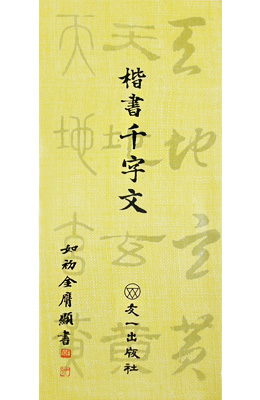 天地玄黃
天地玄黃
天地玄黃
楷書千字文
如初金膺顯書
文一出版社